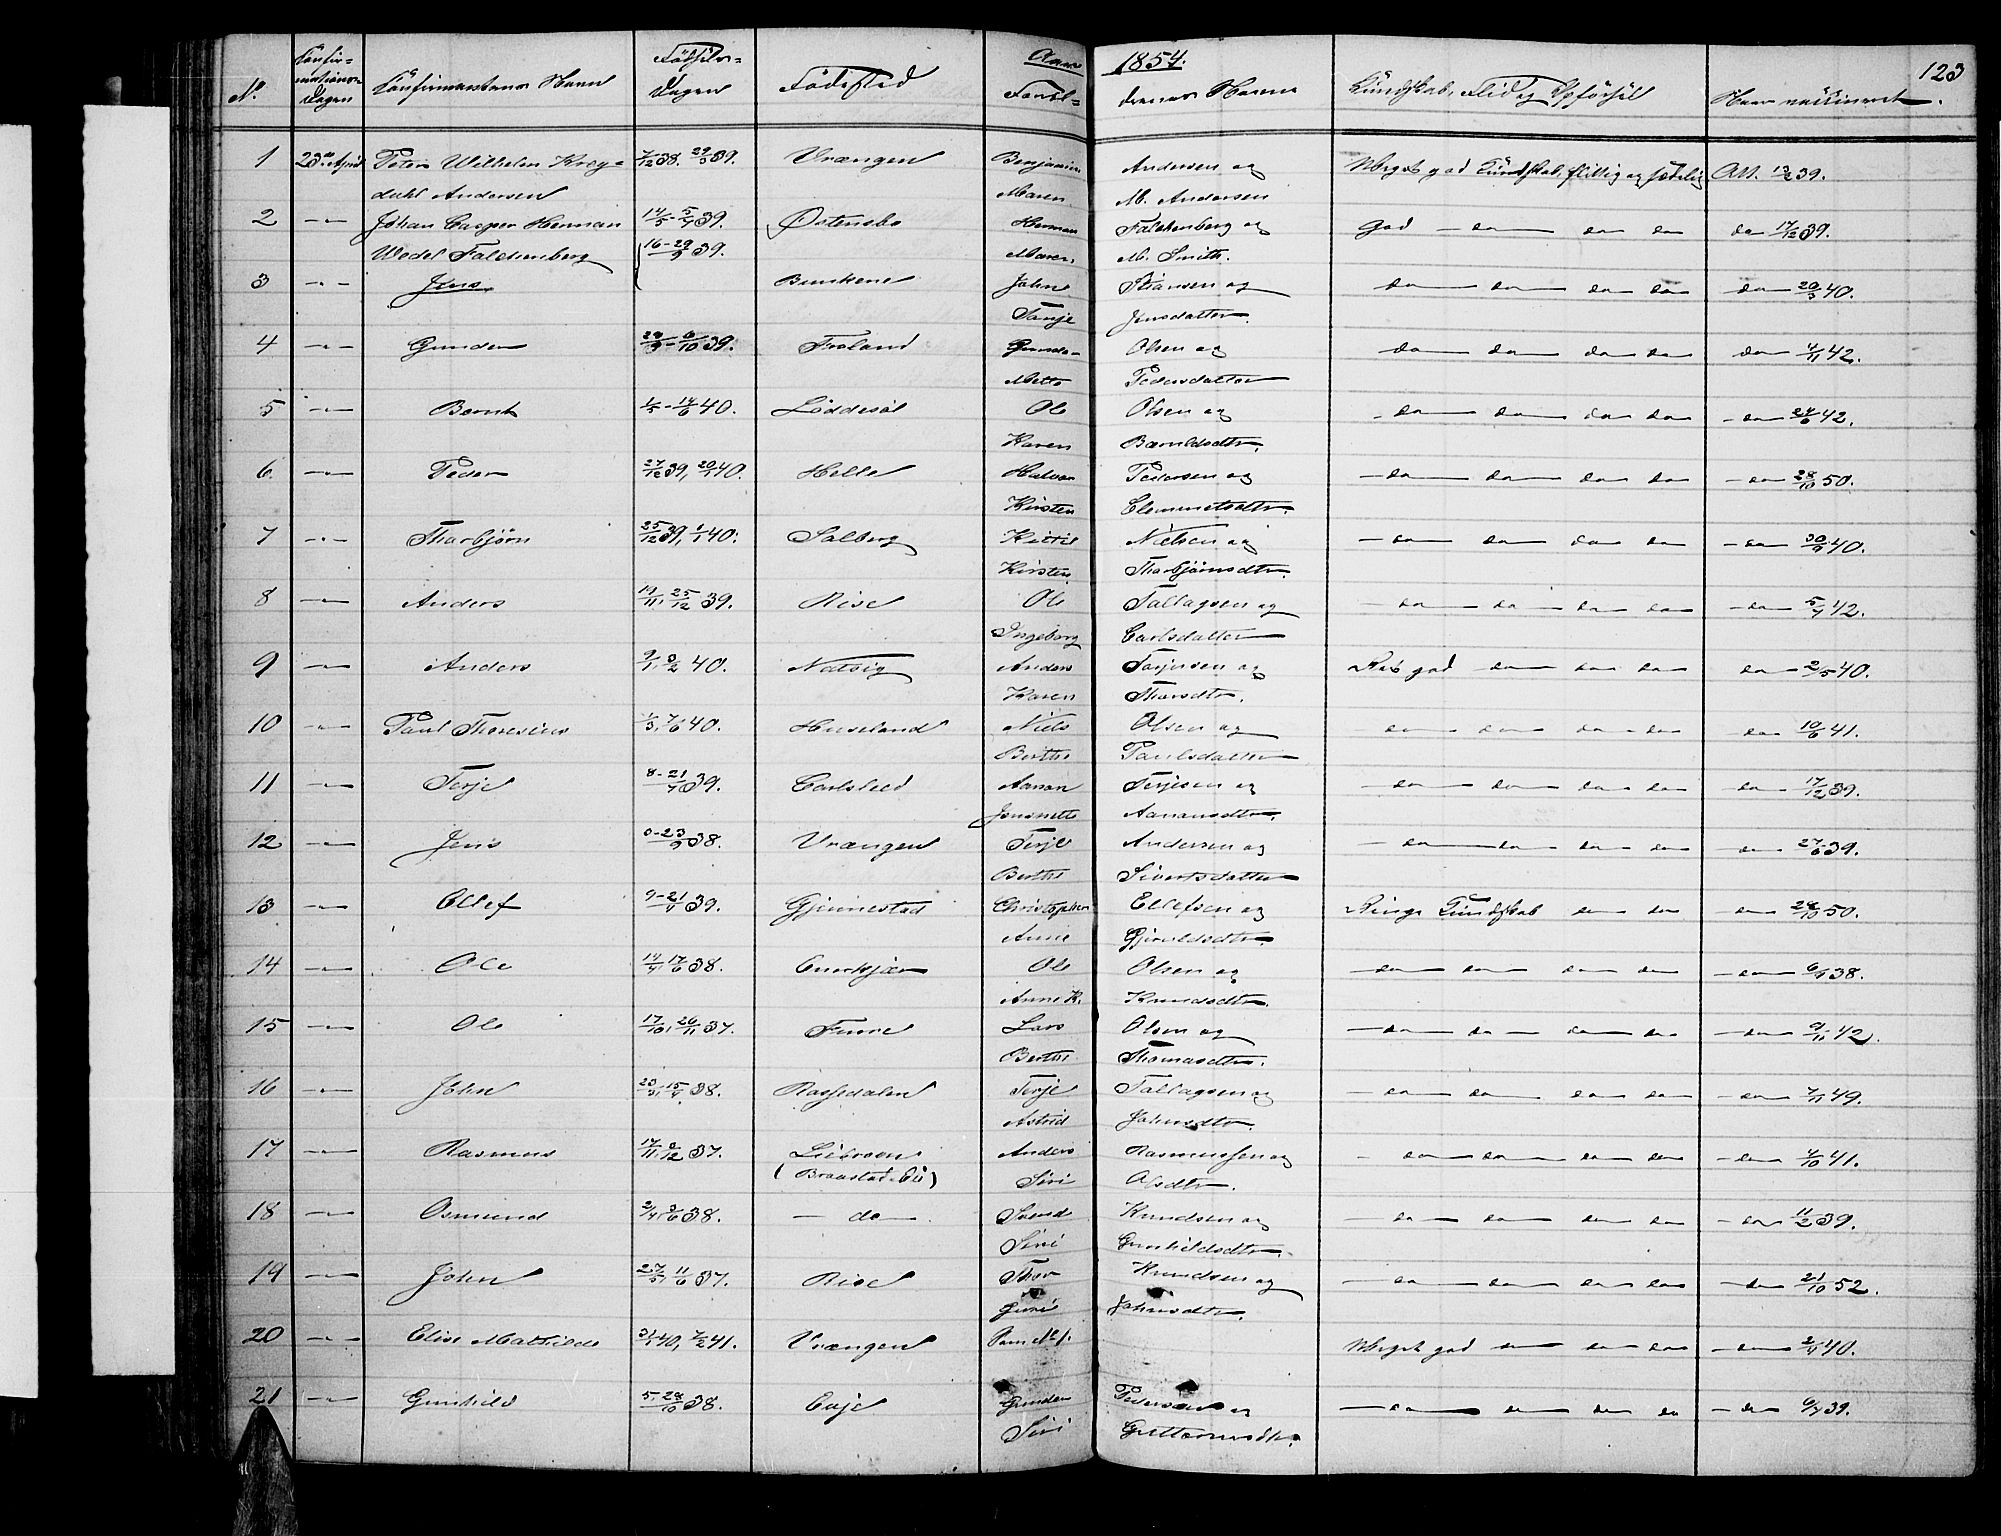 Aar 1854. 123
No. Confirmationsdagen Confirmantens Navn Fødselsdagen Fødested Forældrenes Navne Kundskab, Flid og Opførsel Naar vaccineret.
1 23de April Peter Wilhelm Krog- 7/12 38. 29/3 39. Vrængen Benjamin Andersen og Meget god Kundskab, flittig og sædelig Att. 13/2 39.
dahl Andersen Maren M. Andersen
2 -"- Johan Casper Herman 14/3-5/4 39. Østensbø Herman Falchenberg og god do do do do 17/12 39.
Wedel Falchenberg Maren M. Smith.
3 -"- Jens 16-29/9 39. Buskene John do do do do do 20/3 40.
Terje Jensdatter.
4 -"- Gunder 29/9-6/10 39. Froland Gunder Olsen og do do do do do 4/11 42.
Mette Pedersdatter
5 -"- Bernt 1/5-14/6 40. Løddesøl Ole Olsen og do do do do do 24/6 42.
Karen Berntsdtr.
6 -"- Peder 27/12 39, 20/4 40. Helle Halvor Pedersen og do do do do do 28/10 50.
Kirsten Clemmetsdtr.
7 -"- Thorbjørn 25/12 39, 1/1 40. Solberg Kittil Nielsen og do do do do do 30/9 40.
Kirsten Thorbjørnsdtr.
8 -"- Anders 19/11, 25/12 39. Rise Ole Tallagsen og do do do do do 5/7 42.
Ingeborg Carlsdatter
9 -"- Anders 9/1, 9/2 40. Natvig Anders Terjersen og god do do do do 2/5 40.
Karen Thorsdtr.
10 -"- Paul Thoresius 1/3, 7/6 40. Huseland Niels Olsen og do do do do do 10/6 41.
Berthe Paulsdatter
11 -"- Terje 8-21/7 39. Carlslied Aanon Terjesen og do do do do do 17/12 39.
Jensnette Aanonsdtr.
12 -"- Jens 9-23/9 38. Vrængen Terje Andersen og do do do do do 27/6 39.
Berthe Sivertsdatter
13 -"- Ellef 9-21/4 39. Gjennestad Christopher Ellefsen og Ringe Kundskab do do do 28/10 50.
Anne
14 -"- Ole 14/4, 17/6 38. Ole Olsen og do do do do do 6/7 38.
Anne K. Knudsdtr.
15 -"- Ole 17/10, 26/11 37. Furre Lars Olsen og do do do do do 9/11 42.
Berthe Thomasdtr.
16 -"- John 23/3, 15/4 38. Rassedalen Terje Tallagsen og do do do do do 7/11 49.
Astrid Johnsdtr.
17 -"- Rasmus 17/11, 3/12 37. Anders Rasmussen og do do do do do 4/10 41.
Siri Olsdtr.
18 -"- Osmund 2/4, 3/6 38. do Svend Knudsen og do do do do do 11/2 39.
Siri Gunhildsdtr.
19 -"- John 27/5, 11/6 37. Rise Thor Knudsen og do do do do do 21/10 52.
Guri Johnsdtr.
20 -"- Elise Mathilde 3/5 40, 7/2 41. Vrængen Som No 1. Meget god do do do do 2/9 40.
21 -"- Gunhild 5, 28/10 38. Gunder Pedersen og do do do do do 6/7 39.
Siri Guttormsdtr.